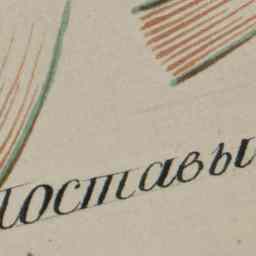 поставы